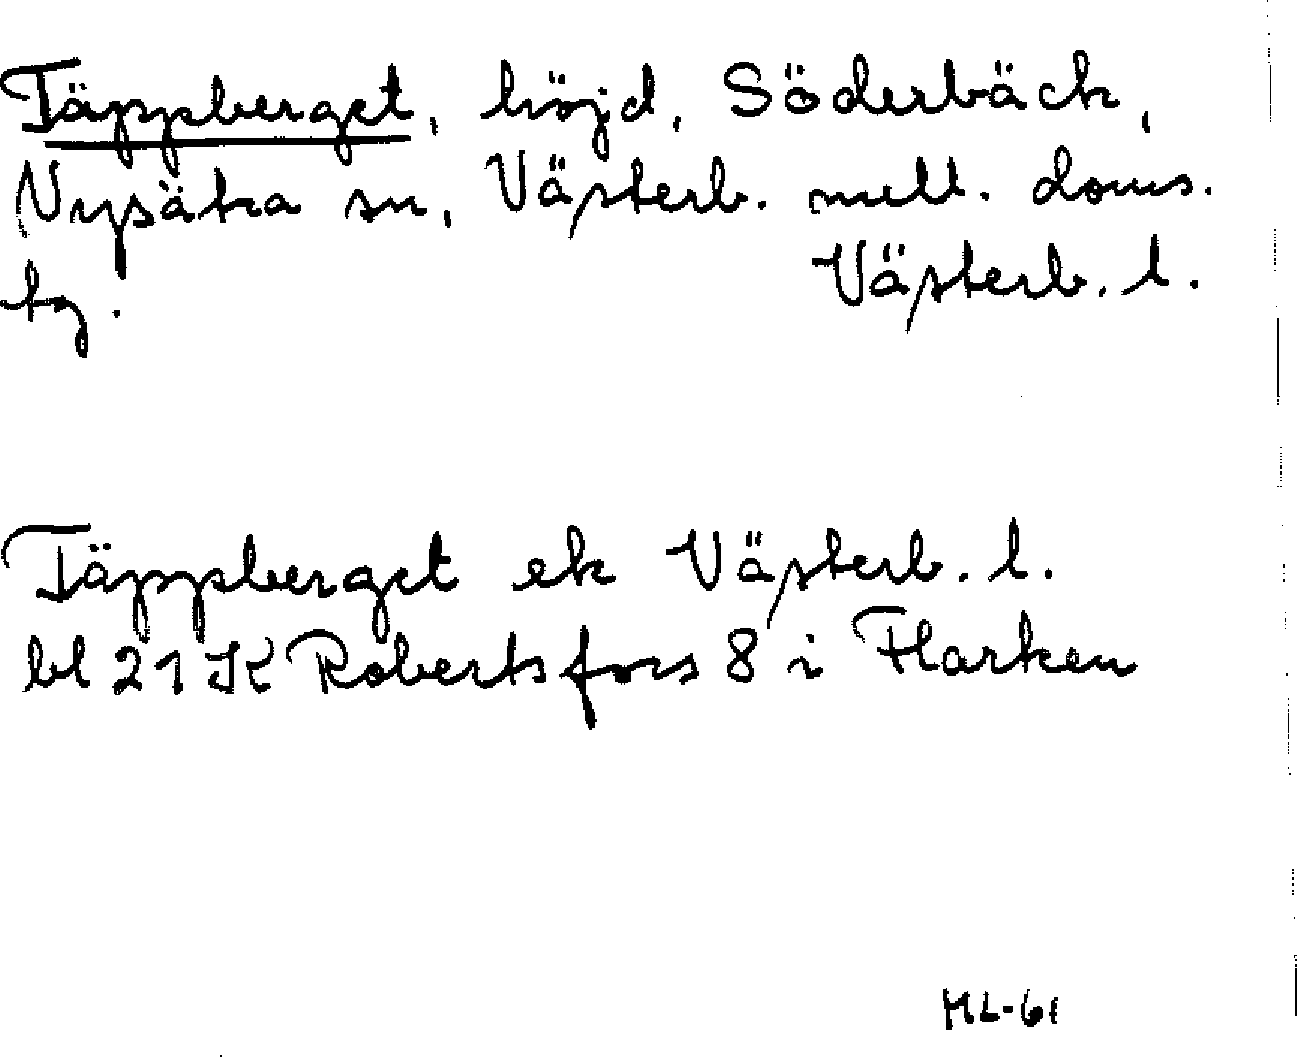 Täppberget, höjd, Söderbäck,
Nysätra sn, Västerb. mell. doms.
tg. Västerb. l.
Täppberget ek Västerb. l.
bl 21 K Robertsfors 8 i Flarken
ML-61